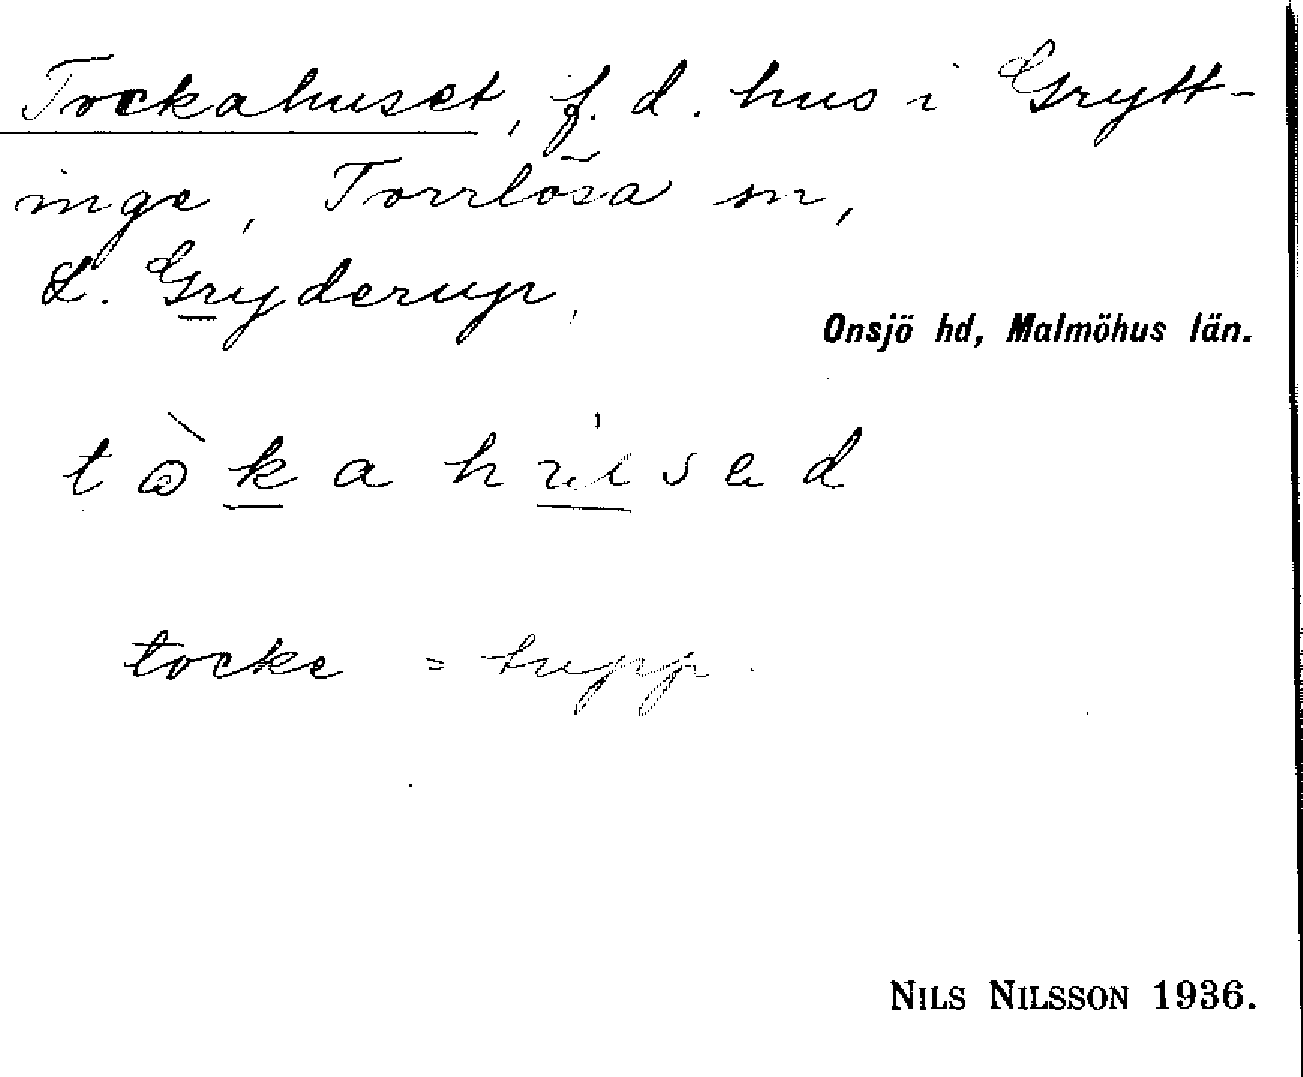 Tockahuset, f. d. hus i Grytt-
inge, Torrlösa sn,
L. Gryderup,
Onsjö hd, Malmöhus län.
tòkahúised
tocke = tupp.
NILS NILSSON 1936.